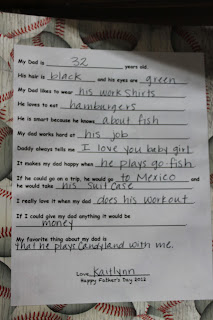 My Dad is 32 years old.
His hair is black and his eyes are green
My Dad likes to wear his work shirts
He loves to eat hamburgers
He is smart because he knows about fish
My dad works hard at his job
Daddy always tells me I love you baby girl
It makes my dad happy when he plays go fish
If he could go on a trip, he would go to Mexico and
he would take his suitcase
I really love it when my dad does his workout
If I could give my dad anything it would be
money
My favorite thing about my dad is
that he plays Candyland with me.
Love, Kaitlynn
Happy Father's Day 2012